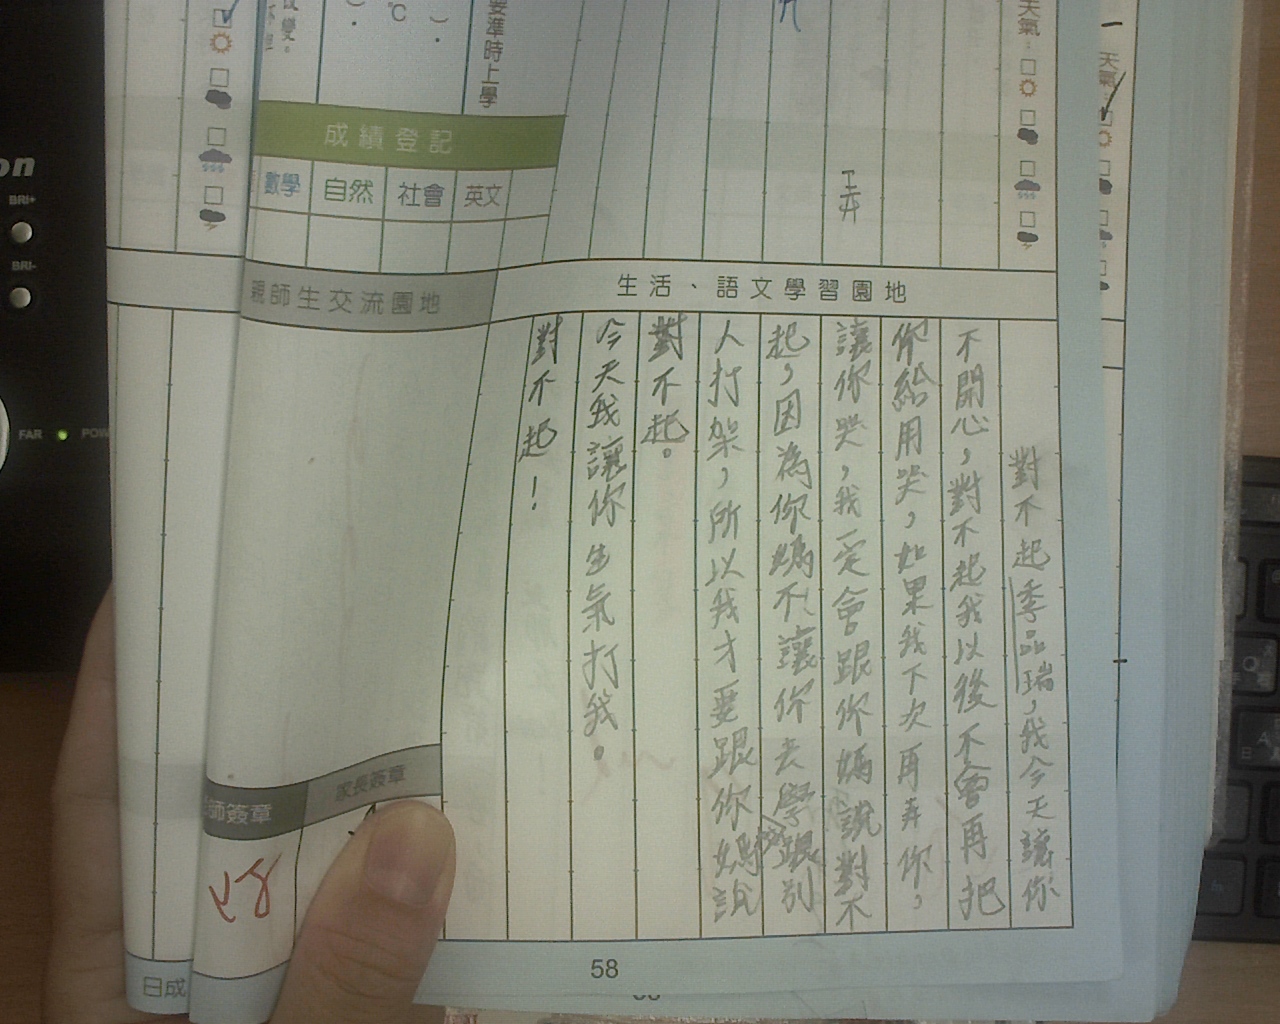 天氣:
一
天氣:
要準時上學
℃
成績登記
數學
自然
社會
英文
弄
生活、語文學習園地
親師生交流園地
對不起季品瑞,我今天讓你
不開心,對不起我以後不會再把
你給用哭,如果我下次再弄你,
讓你哭,我一定會跟你媽說對不
起,因為你媽不讓你去學跟別
人打架,所以我才要跟你媽說
對不起。
今天我讓你生氣打我。
對不起!
家長簽章
師簽章
58
日成
on
BRI+
BRI-
FAR
POW